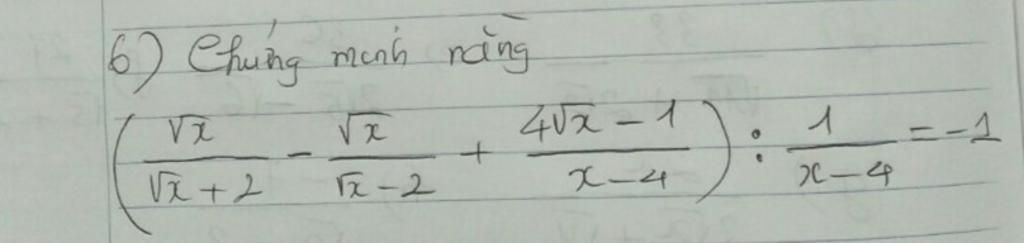 6) Chứng minh rằng
(√x/(√x+2) - √x/(√x-2) + (4√x-1)/(x-4)) : 1/(x-4) = -1